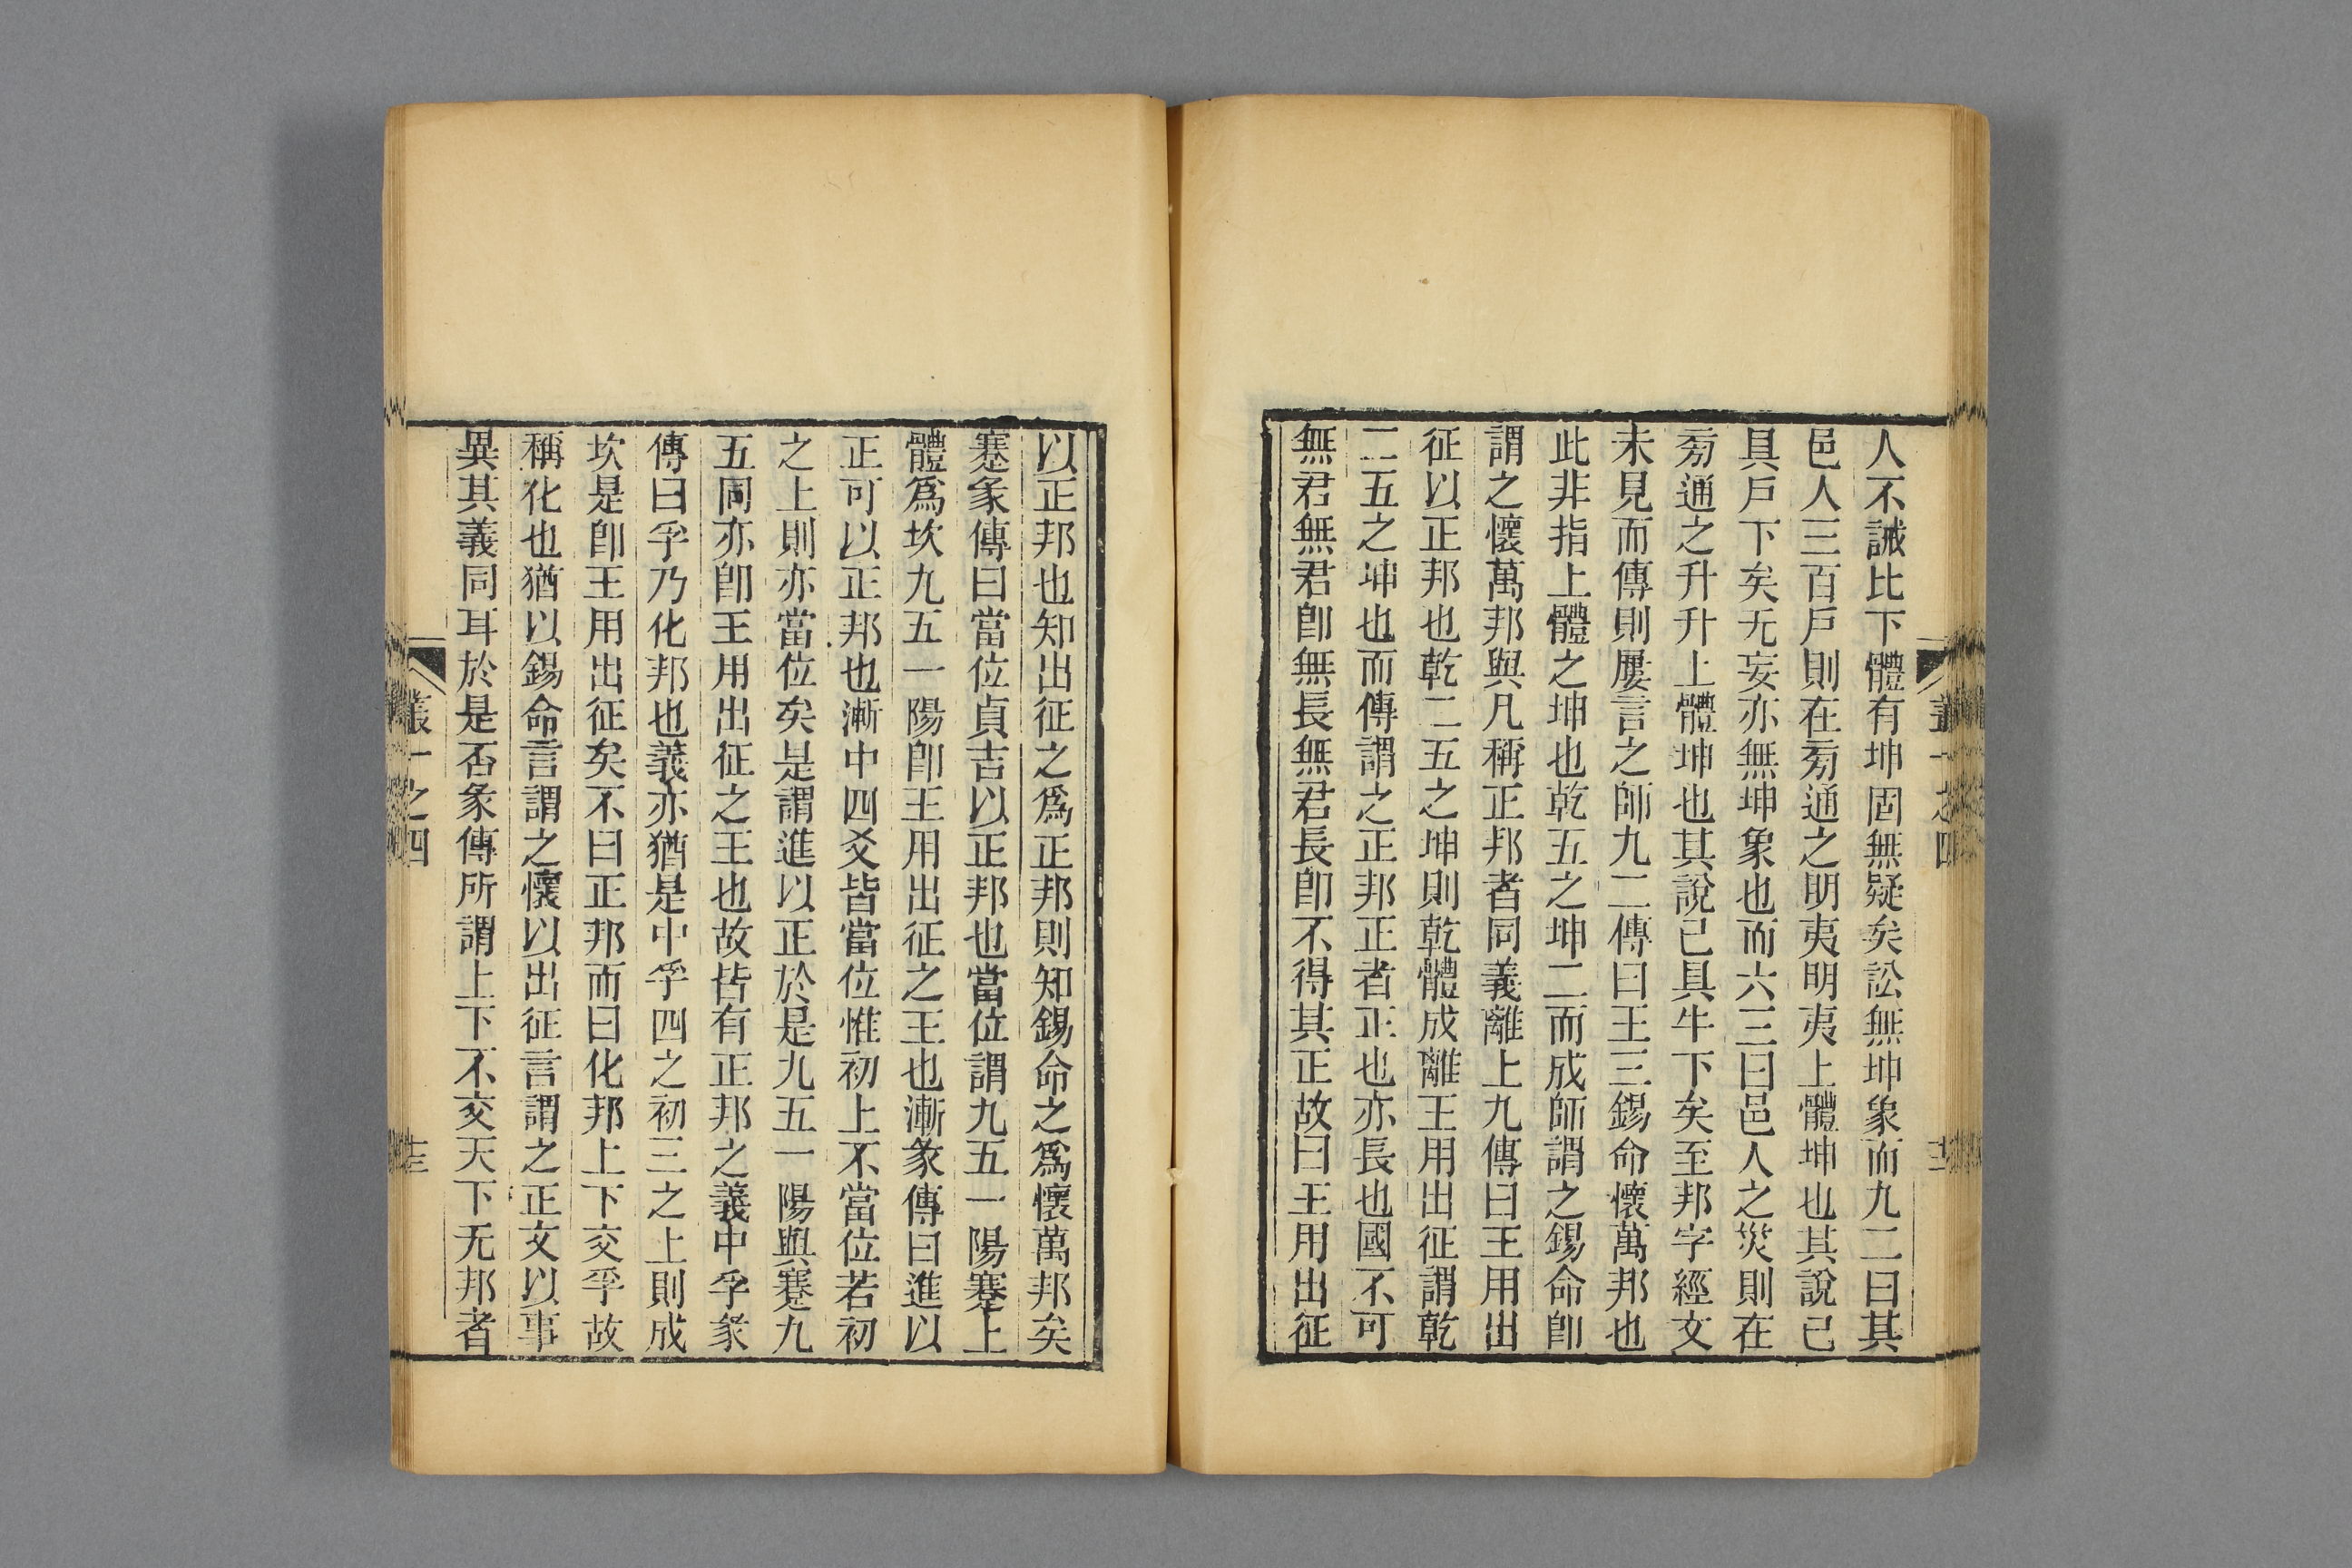 人不誡比下體有坤固無疑矣訟無坤象而九二曰其
邑人三百戸則在旁通之明夷明夷上體坤也其說已
具戸下矣无妄亦無坤象也而六三曰邑人之災則在
旁通之升升上體坤也其說已具牛下矣至邦字經文
未見而傳則屢言之師九二傳曰王三錫命懷萬邦也
此非指上體之坤也乾五之坤二而成師謂之錫命卽
謂之懷萬邦與凡稱正邦者同義離上九傳曰王用出
征以正邦也乾二五之坤則乾體成離王用出征謂乾
二五之坤也而傳謂之正邦正者正也亦長也國不可
無君無君卽無長無君長卽不得其正故曰王用出征
以正邦也知出征之爲正邦則知錫命之爲懷萬邦矣
蹇彖傳曰當位貞吉以正邦也當位謂九五一陽蹇上
體爲坎九五一陽卽王用出征之王也漸彖傳曰進以
正可以正邦也漸中四爻皆當位惟初上不當位若初
之上則亦當位矣是謂進以正於是九五一陽與蹇九
五同亦卽王用出征之王也故皆有正邦之義中孚彖
傳曰孚乃化邦也義亦猶是中孚四之初三之上則成
坎是卽王用出征矣不曰正邦而曰化邦上下交孚故
稱化也猶以錫命言謂之懷以出征言謂之正文以事
異其義同耳於是否彖傳所謂上下不交天下无邦者
叢一之四